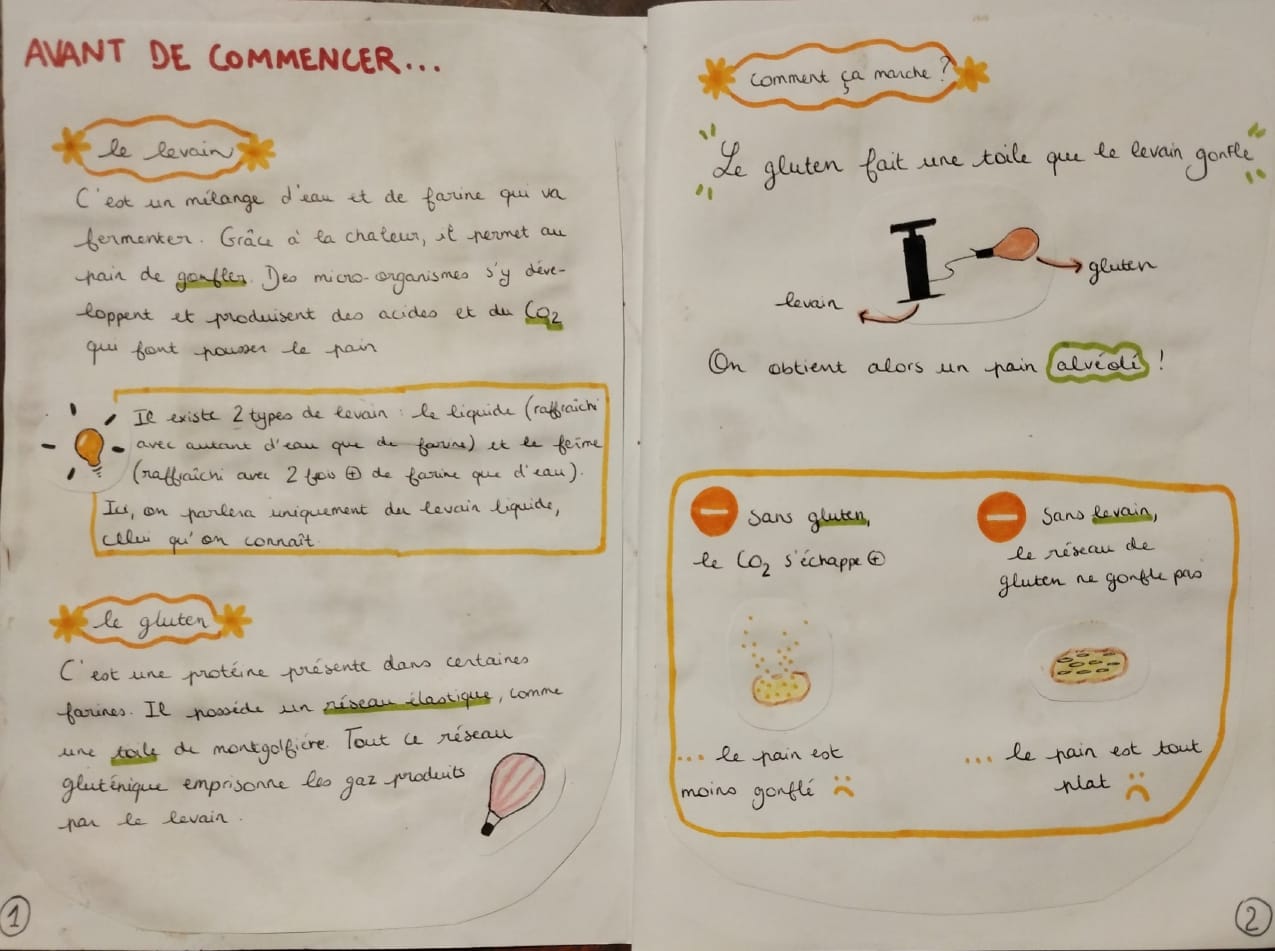 AVANT DE COMMENCER...
le levain
C'est un mélange d'eau et de farine qui va
fermenter. Grâce à la chaleur, il permet au
pain de gonfler. Des micro-organismes s'y déve-
loppent et produisent des acides et du CO2
qui font pousser le pain
Il existe 2 types de levain : le liquide (raffraîchi
avec autant d'eau que de farine) et le ferme
(raffraîchi avec 2 fois + de farine que d'eau).
Ici, on parlera uniquement du levain liquide,
celui qu'on connaît.
le gluten
C'est une protéine présente dans certaines
farines. Il possède un réseau élastique, comme
une toile de montgolfière. Tout ce réseau
gluténique emprisonne les gaz produits
par le levain.
1
Comment ça marche ?
"Le gluten fait une toile que le levain gonfle"
gluten
levain
On obtient alors un pain alvéolé !
Sans gluten,
le CO2 s'échappe +
... le pain est
moins gonflé
Sans levain,
le réseau de
gluten ne gonfle pas
... le pain est tout
plat
2